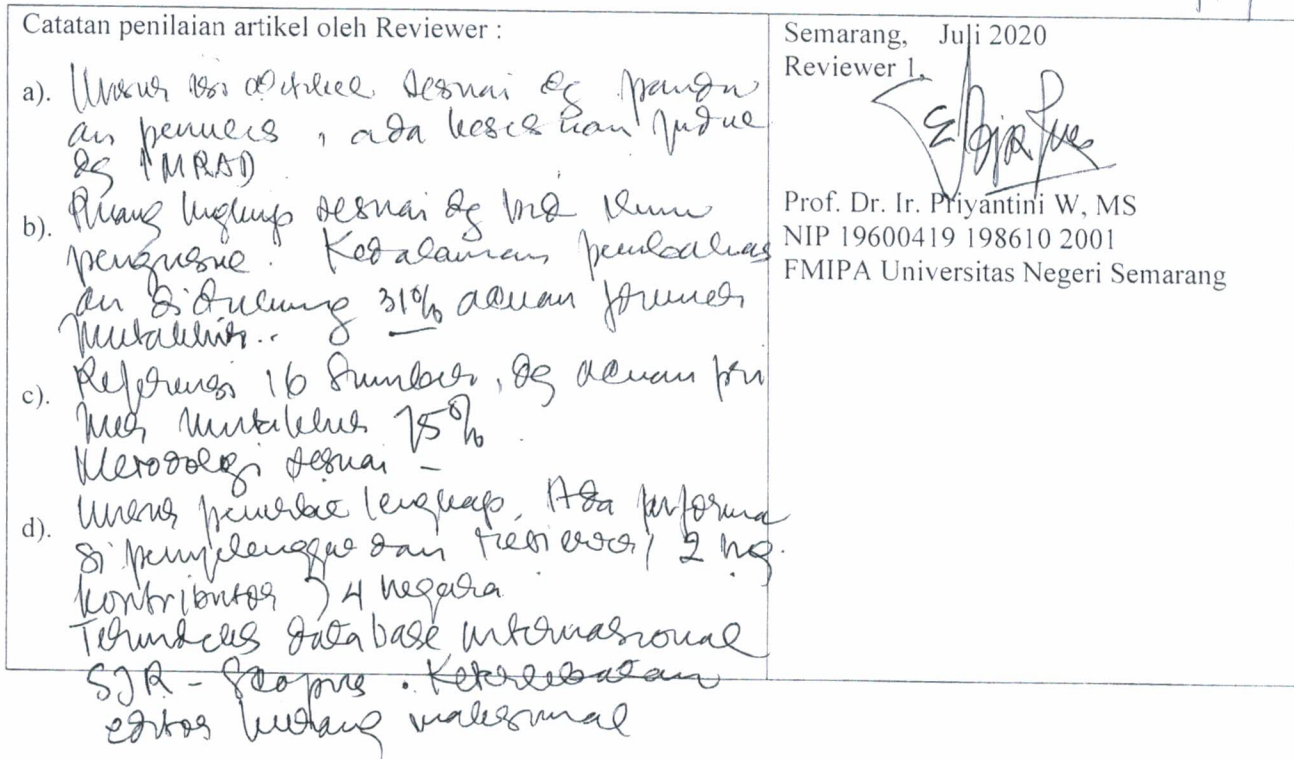 Catatan penilaian artikel oleh Reviewer :
a). Unsur isi artikel sesuai dg pandu
an penulis, ada kesesuaian judul
dg IMRAD
b). Ruang lingkup sesuai dg bid ilmu
pengusul. Kedalaman pembahas
an didukung 31% acuan jurnal
mutakhir..
c). Referensi 16 sumber, dg acuan pri
mer mutakhir 75%
Metodologi sesuai -
d). Unsur penerbit lengkap. Ada
si penyelenggara dan reviewer, 2 ng.
kontributor > 4 negara
Terindeks database internasional
SJR - Scopus. Keterlibatan
editor kurang maksimal
Semarang, Juli 2020
Reviewer 1,
Prof. Dr. Ir. Priyantini W, MS
NIP 19600419 198610 2001
FMIPA Universitas Negeri Semarang